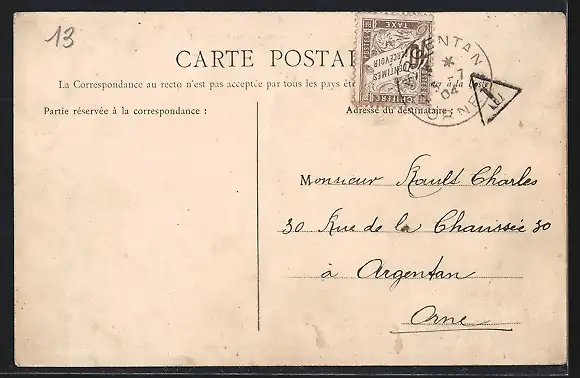 13
CARTE POSTA
La Correspondance au recto n'est pas acceptée par tous les pays
à la Poste
Partie réservée à la correspondance :
Adresse du destinataire :
POSTES
TAXE
10
CENTIMES
PERCEVOIR
CHIFFRE
ENTAN
ORNE
04
Monsieur Rault Charles
30 Rue de la Chaussée 30
à Argentan
Orne